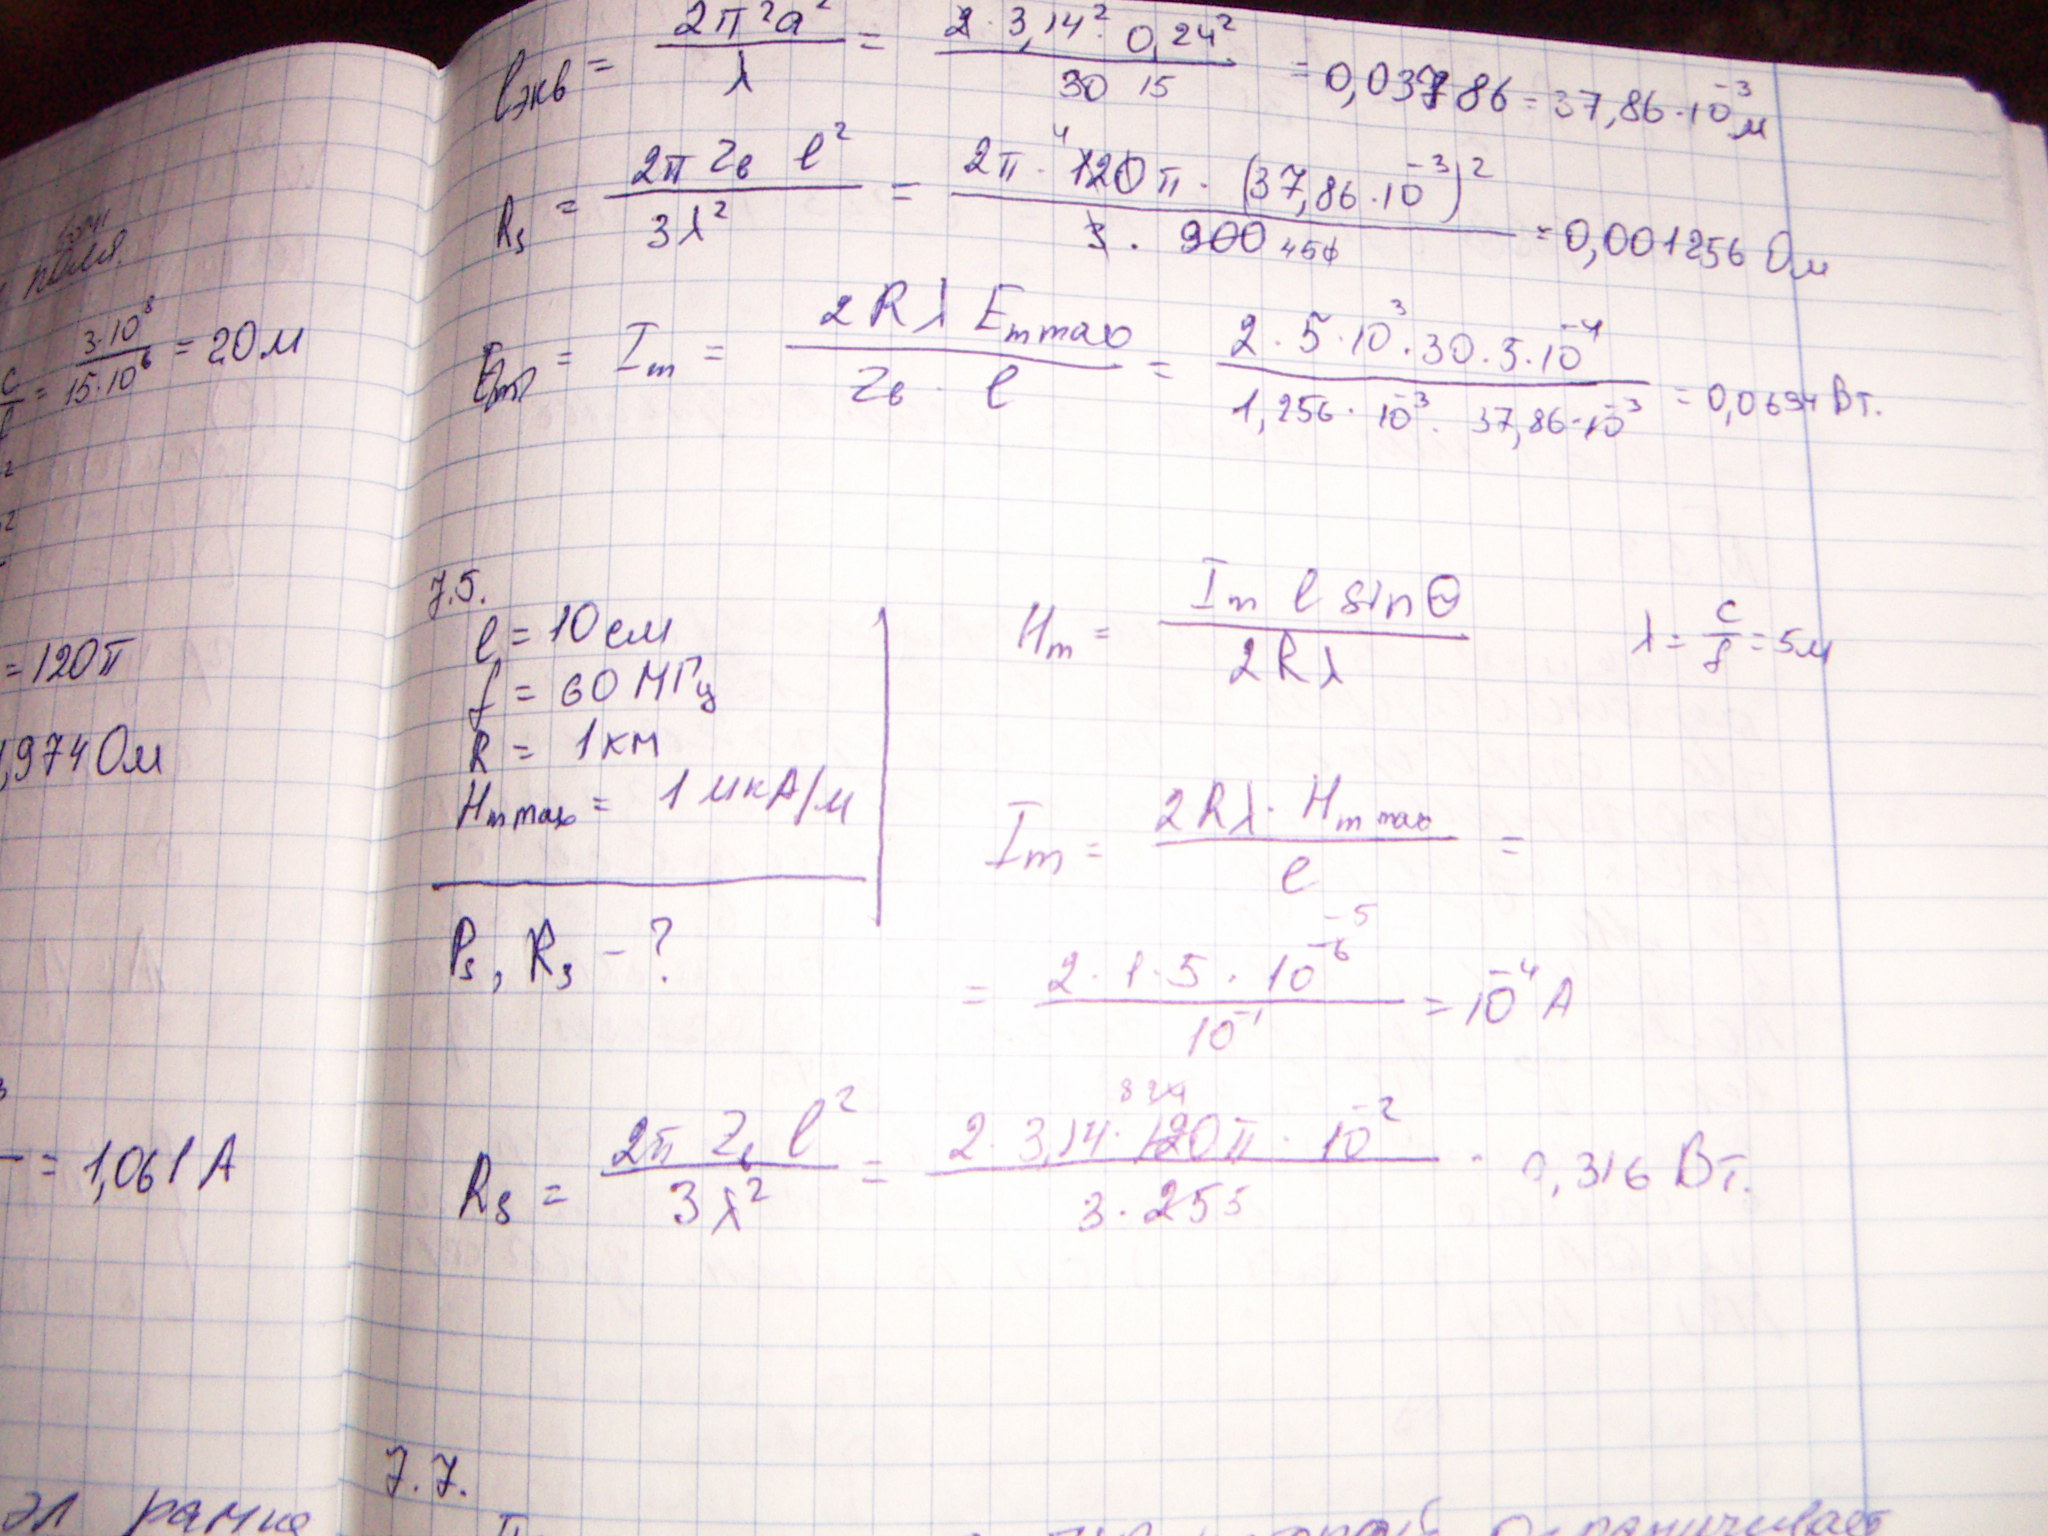 поля
c/f = 3·10⁸/15·10⁶ = 20 м
= 120π
,974 Ом
= 1,061 А
эл рамка
lэкв = 2π²a²/λ = 2·3,14²·0,24²/30 15 = 0,03786 = 37,86·10⁻³ м
Rs = 2π Zв l²/3λ² = 2π·120π·(37,86·10⁻³)²/3·900 450 = 0,001256 Ом
= Im = 2Rλ Em max/Zв·l = 2·5·10³·30·5·10⁻⁴/1,256·10⁻³·37,86·10⁻³ = 0,0694 Вт.
7.5.
l = 10 см
f = 60 МГц
R = 1 км
Hm max = 1 мкА/м
Ps, Rs – ?
Hm = Im l sinΘ/2Rλ
λ = c/f = 5м
Im = 2Rλ·Hm max/l =
= 2·1·5·10⁻⁶ ⁻⁵/10⁻¹ = 10⁻⁴ А
Rs = 2π Zв l²/3λ² = 2·3,14·120π·10⁻²/3·25 5 = 0,316 Вт.
7.7.
ограничивает